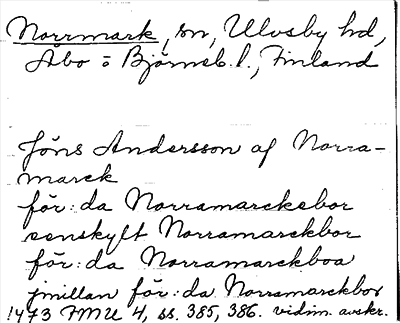 Norrmark, sn, Ulvsby hd,
Åbo o Björneb. l., Finland
Jöns Andersson af Norra-
marck
för:da Norramarckebor
senskylt Norramarckbor
för:da Norramarckboa
jmillan för:da Norramarckbor
1473 FMU 4, ss. 385, 386. vidim. avskr.